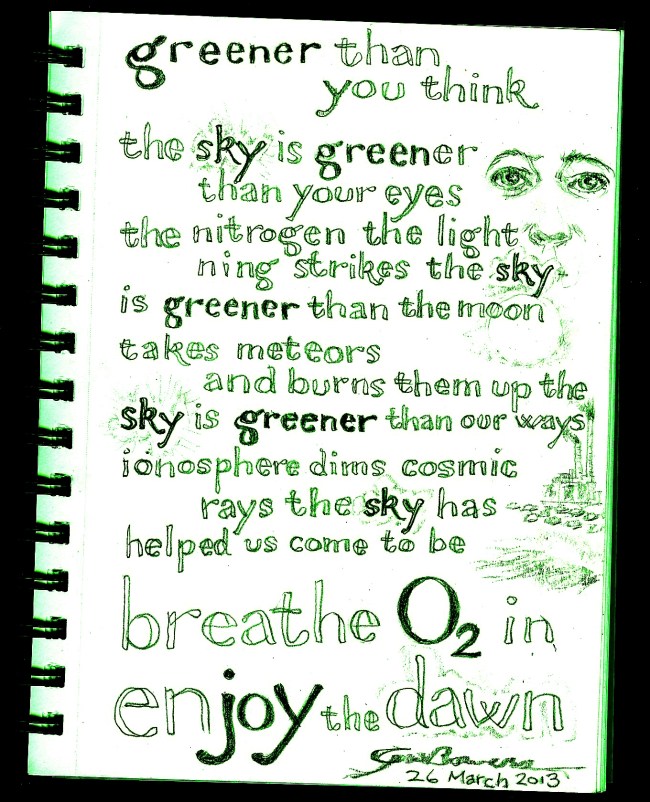 greener than
you think
the sky is greener
than your eyes
the nitrogen the light
ning strikes the sky
is greener than the moon
takes meteors
and burns them up the
sky is greener than our ways
ionosphere dims cosmic
rays the sky has
helped us come to be
breathe O2 in
enjoy the dawn
26 March 2013